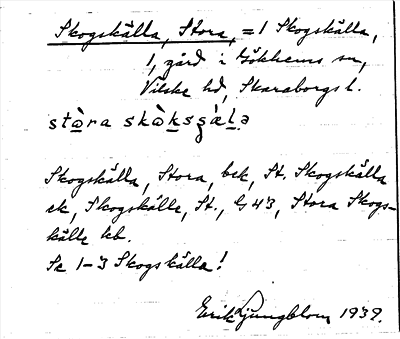 Skogskälla, Stora, = 1 Skogskälla,
1, gård i Gökhems sn,
Vilske hd, Skaraborgs l.
stò̱ra skò̱ksʂàḻə
Skogskälla, Stora, bek, St. Skogskälla
ek, Skogskälle, St., G 43, Stora Skogs-
källe kb.
Se 1-3 Skogskälla!
Erik Ljungblom 1939.